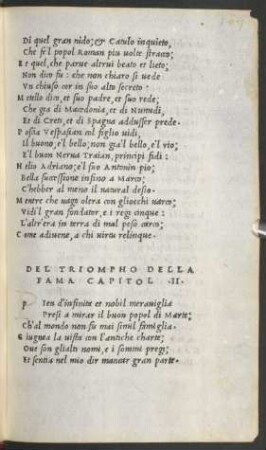 Di quel gran nido; & Catulo inquieto,
Che fe'l popol Roman piu uolte stracco;
Et quel, che parue altrui beato et lieto;
Non dico fu: che non chiaro si uede
Vn chiuso cor in suo alto secreto:
Metello dico, et suo padre, et suo rede;
Che gia di Macedonia, et di Numidi,
Et di Creti, et di Spagna addusser prede.
Poscia Vespasian col figlio uidi,
Il buono, e'l bello; non gia'l bello, e'l rio;
E'l buon Nerua Traian, principi fidi:
Helio Adriano, e'l suo Antonin pio;
Bella successione infino a Marco;
C'hebber al meno il natural desio.
Mentre che uago oltra con gliocchi uarco;
Vidi'l gran fondator, e i regi cinque:
L'altr'era in terra di mal peso carco;
Come adiuene, a chi uirtu relinque.
DEL TRIOMPHO DELLA
FAMA CAPITOL .II.
Pien d'infinita et nobil merauiglia
Presi a mirar il buon popol di Marte;
Ch'al mondo non fu mai simil famiglia.
Giugnea la uista con l'antiche charte;
Oue son glialti nomi, e i sommi pregi;
Et sentia nel mio dir mancar gran parte.